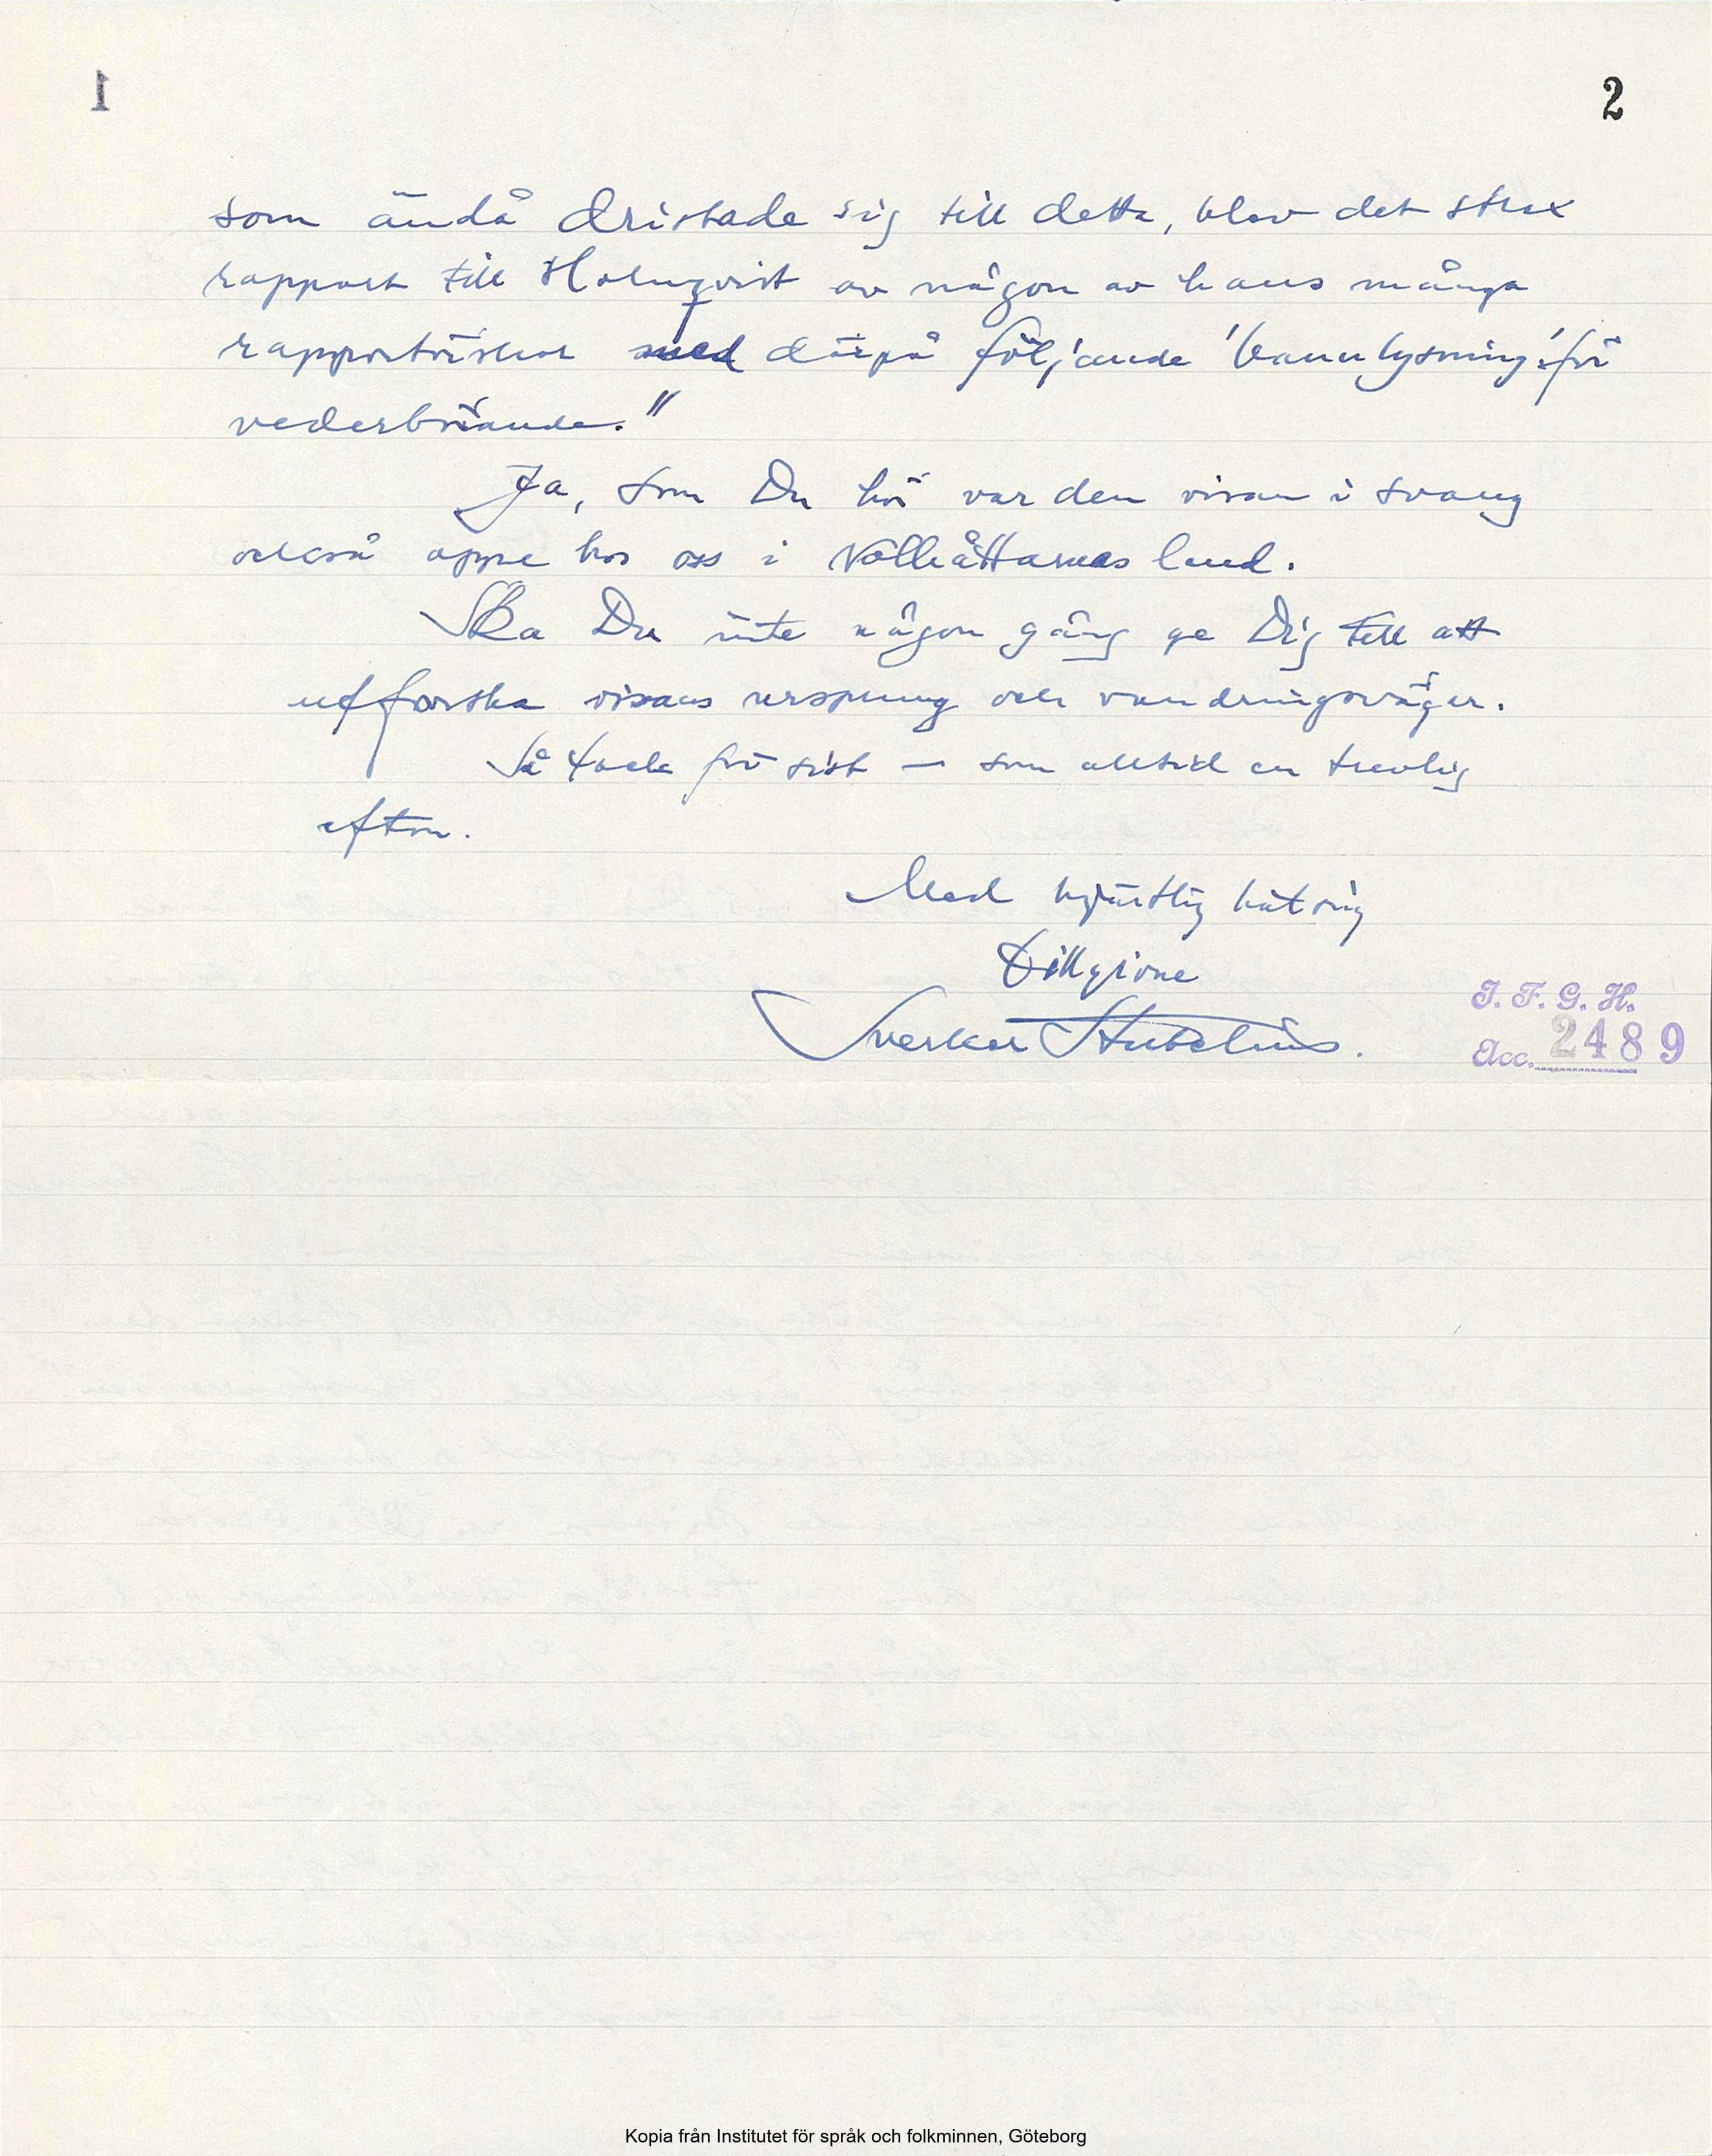 1
2
som ändå dristade sig till detta, blev det strax
rapport till Holmqvist av någon av hans många
rapportörskor med därpå följande 'bannlysning' för
vederbörande."
Ja, som Du hör var den visan i svang
också oppe hos oss i Nolhåttarnas land.
Ska Du inte någon gång ge Dig till att
utforska visans ursprung och vandringsvägar.
Så tack för sist — som alltid en trevlig
afton.
Med hjärtlig hälsning
Tillgivne
Sverker Stubelius.
I. F. G. H.
Acc. 2489
Kopia från Institutet för språk och folkminnen, Göteborg